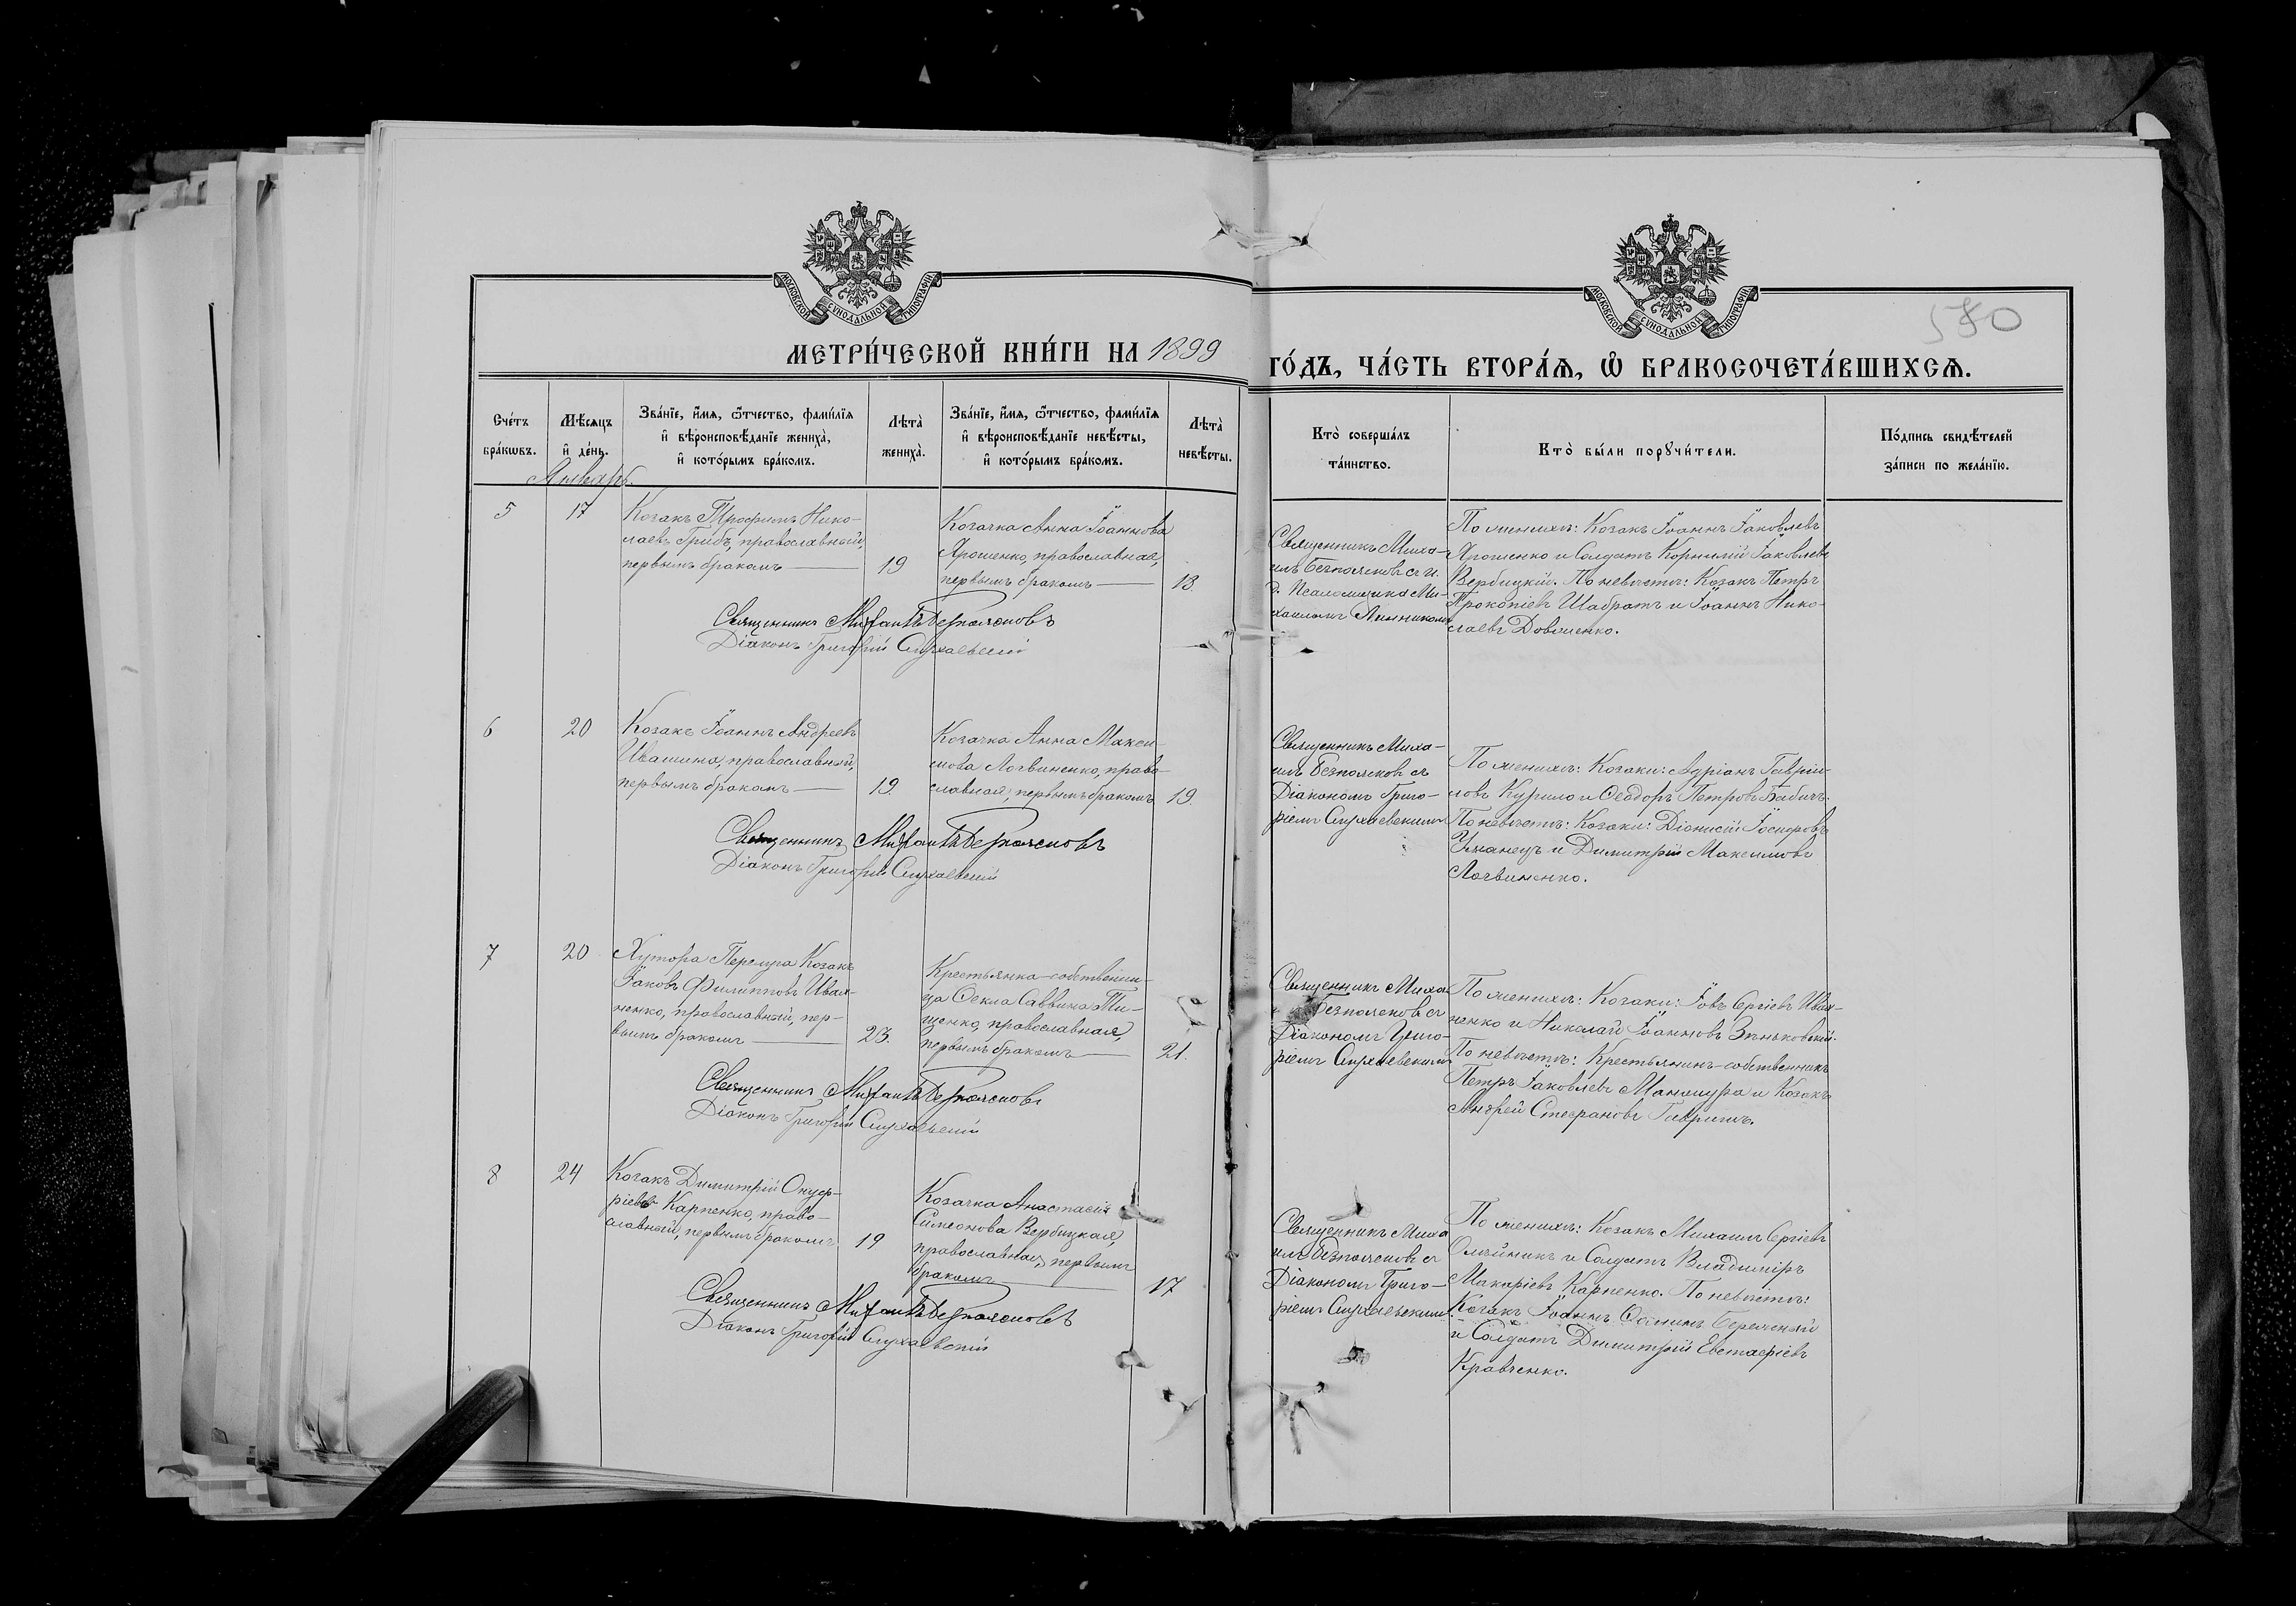 МОСКОВСКОЙ СУНОДАЛЬНОЙ ТИПОГРАФІИ
МОСКОВСКОЙ СУНОДАЛЬНОЙ ТИПОГРАФІИ
580
МЕТРИ́ЧЕСКОЙ КНИ́ГИ НА 1899
ГО́ДЪ, ЧА́СТЬ ВТОРА́Ѧ, Ѡ҆ БРАКОСОЧЕТА́ВШИХСѦ.
Сче́тъ
бра́кѡвъ.
Мѣ́сѧцъ
и҆ де́нь.
Зва́нїе, и҆́мѧ, ѻ҆́тчество, фами́лїѧ
и҆ вѣроисповѣ́данїе жениха̀,
и҆ кото́рымъ бра́комъ.
Лѣта̀
жениха̀.
Зва́нїе, и҆́мѧ, ѻ҆́тчество, фами́лїѧ
и҆ вѣроисповѣ́данїе невѣ́сты,
и҆ кото́рымъ бра́комъ.
Лѣта̀
невѣ́сты.
Кто̀ соверша́лъ
та́инство.
Кто̀ бы́ли порꙋчи́тели.
По́дпись свидѣ́телей
за́писи по жела́нїю.
Январь.
5
17
Козакъ Трофимъ Нико-
лаевъ Грибъ, православный,
первымъ бракомъ
19
Козачка Анна Іоаннова
Ярошенко, православная,
первымъ бракомъ
18.
Священникъ Миха-
илъ Безпоясковъ съ и.
д. Псаломщика Ми-
хаиломъ
По женихѣ: Козакъ Іоаннъ Іаковлевъ
Ярошенко и Солдатъ Корнилій Іаковлевъ
Вербицкій. По невѣстѣ: Козакъ Петръ
Прокопіевъ Шабратъ и Іоаннъ Нико-
лаевъ Довженко.
Священникъ Михаилъ Безпоясковъ
Діаконъ Григорій Слухаевскій
6
20
Козакъ Іоаннъ Андреевъ
Ивашина, православный,
первымъ бракомъ
19.
Козачка Анна Макси-
мова Логвиненко, право-
славная, первымъ бракомъ
19.
Священникъ Миха-
илъ Безпоясковъ съ
Діакономъ Григо-
ріемъ Слухаевскимъ
По женихѣ: Козаки: Адріанъ Гавріи-
ловъ Курило и Феодоръ Петровъ Бабичъ.
По невѣстѣ: Козаки: Діонисій Іосифовъ
Уманецъ и Димитрій Максимовъ
Логвиненко.
Священникъ Михаилъ Безпоясковъ
Діаконъ Григорій Слухаевскій
7
20
Хутора Перемга Козакъ
Іаковъ Филипповъ Ивах-
ненко, православный, пер-
вымъ бракомъ
23.
Крестьянка-собственни-
ца Фекла Саввина Ти-
щенко, православная,
первымъ бракомъ
21.
Священникъ Миха-
Безпоясковъ съ
Діакономъ Григо-
ріемъ Слухаевскимъ
По женихѣ: Козаки: Іовъ Сергіевъ Ивах-
ненко и Николай Іоанновъ Зѣньковскій.
По невѣстѣ: Крестьянинъ-собственникъ
Петръ Іаковлевъ Манжура и Козакъ
Андрей Стефановъ Гавришъ.
Священникъ Михаилъ Безпоясковъ
Діаконъ Григорій Слухаевскій
8
24
Козакъ Димитрій Онуф-
ріевъ Карпенко, право-
славный, первымъ бракомъ
19
Козачка Анастасія
Симеонова Вербицкая,
православная, первымъ
бракомъ
17
Священникъ Миха
илъ Безпоясковъ съ
Діакономъ Григо-
ріемъ Слухаевскимъ
По женихѣ: Козакъ Михаилъ Сергіевъ
Олейникъ и Солдатъ Владиміръ
Макаріевъ Карпенко. По невѣстѣ:
Козакъ Іоаннъ Фоминъ Бережный
и Солдатъ Димитрій Евстафіевъ
Кравченко.
Священникъ Михаилъ Безпоясковъ
Діаконъ Григорій Слухаевскій